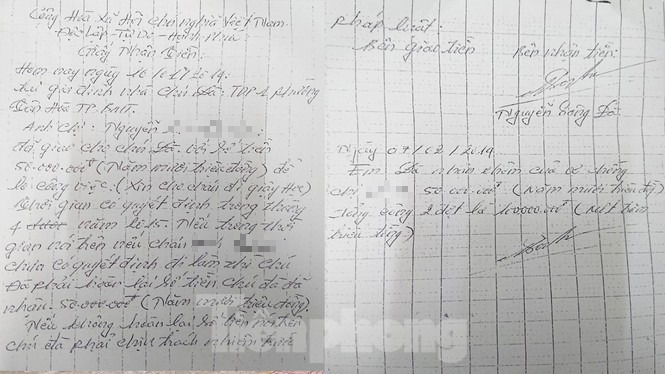 Cộng Hòa Xã Hội Chủ nghĩa Việt Nam.
Độc Lập - Tự Do - Hạnh Phúc
Giấy Nhận Tiền:
Hôm nay ngày 16
tại gia đình nhà chú Đã: TDP 4 phường
TP.
Anh chị: Nguyễn
đã giao cho chú Đã với số tiền
50.000.000đ (Năm mươi triệu đồng) để
lo công việc. (Xin cho cháu đi dạy Học)
thời gian có quyết định trong tháng
4 năm 2015. Nếu trong thời
gian nói trên nếu cháu
chưa có quyết định đi làm thì chú
Đã phải hoàn lại số tiền chú đã đã
nhận. 50.000.000đ (Năm mươi triệu đồng).
Nếu không hoàn lại số tiền nói trên
chú đã phải chịu trách nhiệm trước
pháp luật:
Bên giao tiền
Bên nhận tiền:
Nguyễn Hồng Đã
Ngày 07/02/2014
Em Đã nhận thêm của vợ chồng
chị 50.000.000đ (Năm mươi triệu đồng)
Tổng cộng 2 đợt là 100.000.000đ (Một trăm
triệu đồng)
tienphong